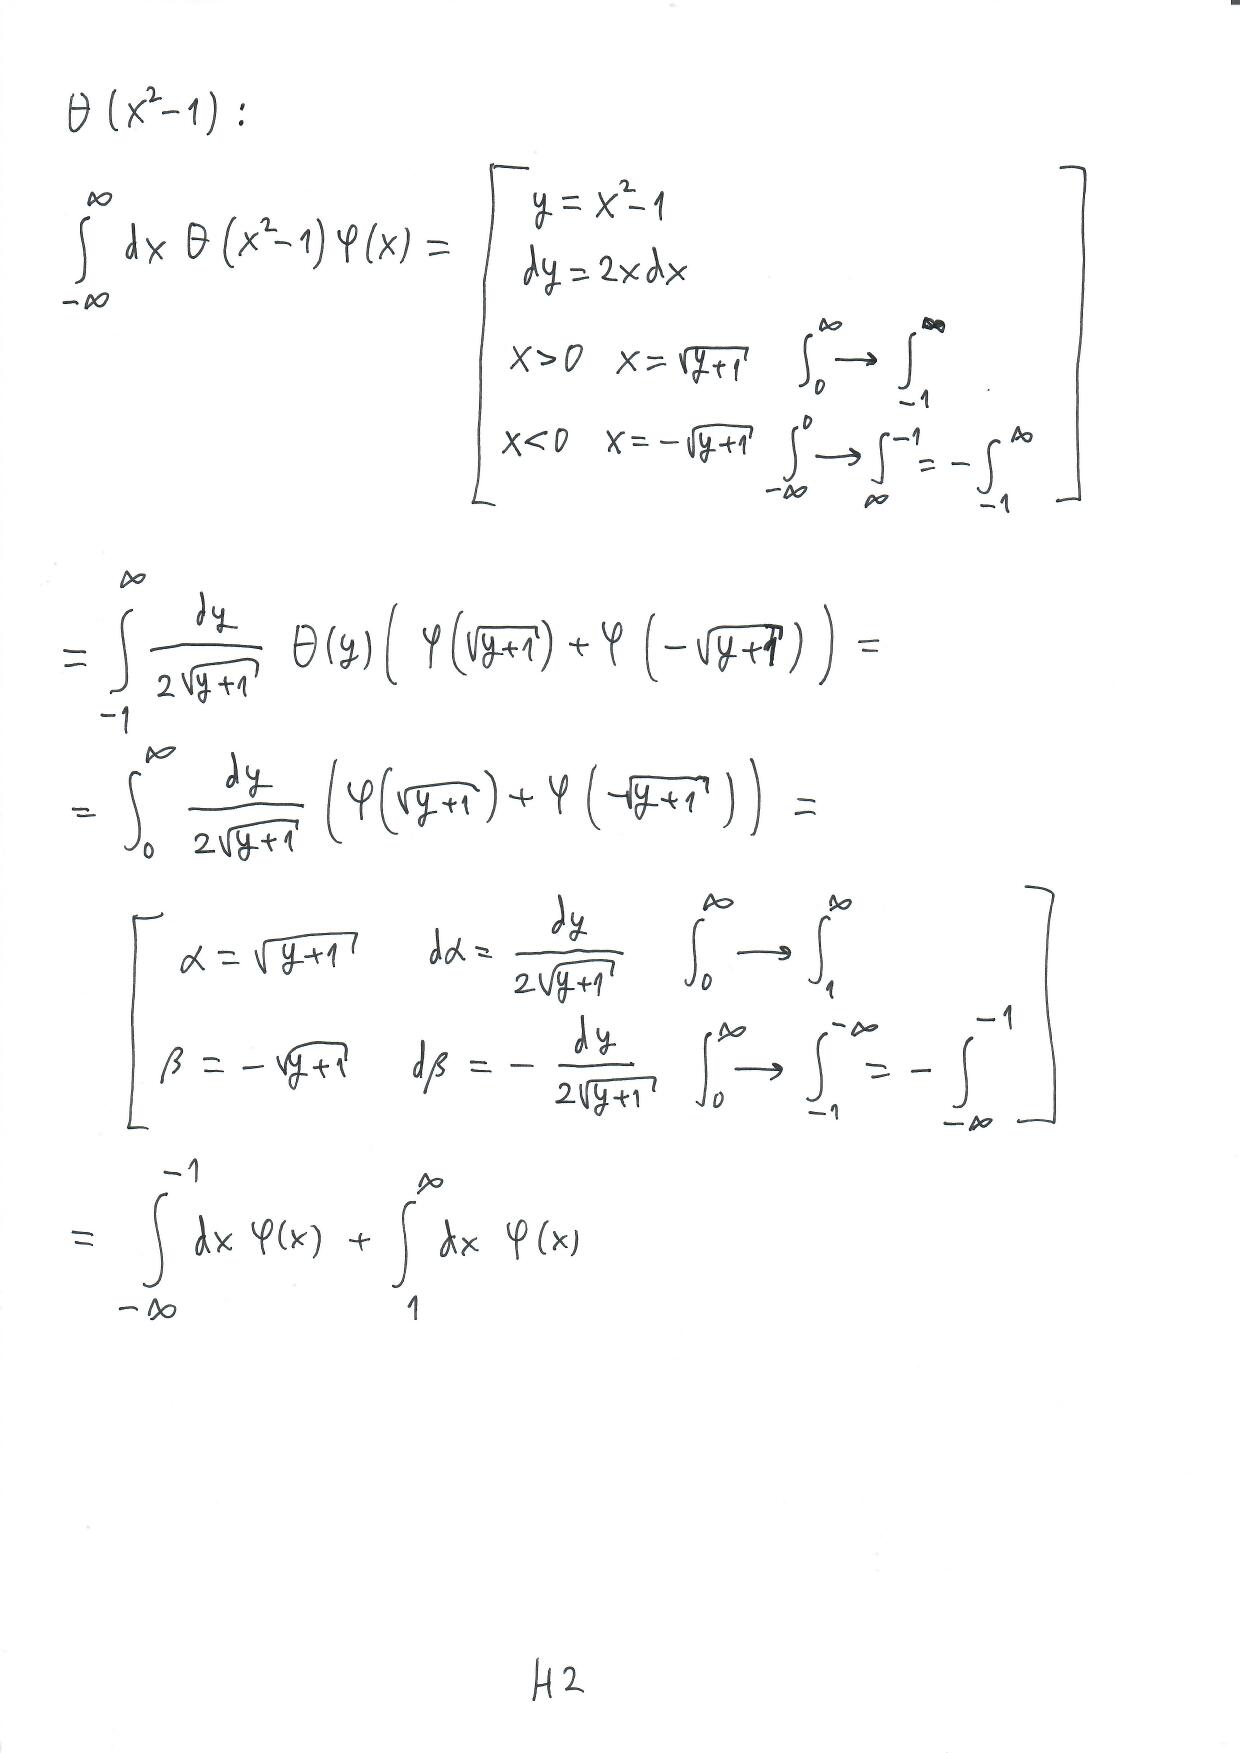 θ(x²-1):
∫_{-∞}^{∞} dx θ(x²-1) φ(x) = [ y = x²-1
dy = 2xdx
x>0 x = √(y+1) ∫_0^∞ → ∫_{-1}^∞
x<0 x = -√(y+1) ∫_{-∞}^0 → ∫_∞^{-1} = -∫_{-1}^∞ ]
= ∫_{-1}^∞ dy/(2√(y+1)) θ(y) ( φ(√(y+1)) + φ(-√(y+1)) ) =
= ∫_0^∞ dy/(2√(y+1)) ( φ(√(y+1)) + φ(-√(y+1)) ) =
[ α = √(y+1) dα = dy/(2√(y+1)) ∫_0^∞ → ∫_1^∞
β = -√(y+1) dβ = - dy/(2√(y+1)) ∫_0^∞ → ∫_{-1}^{-∞} = -∫_{-∞}^{-1} ]
= ∫_{-∞}^{-1} dx φ(x) + ∫_1^∞ dx φ(x)
H2